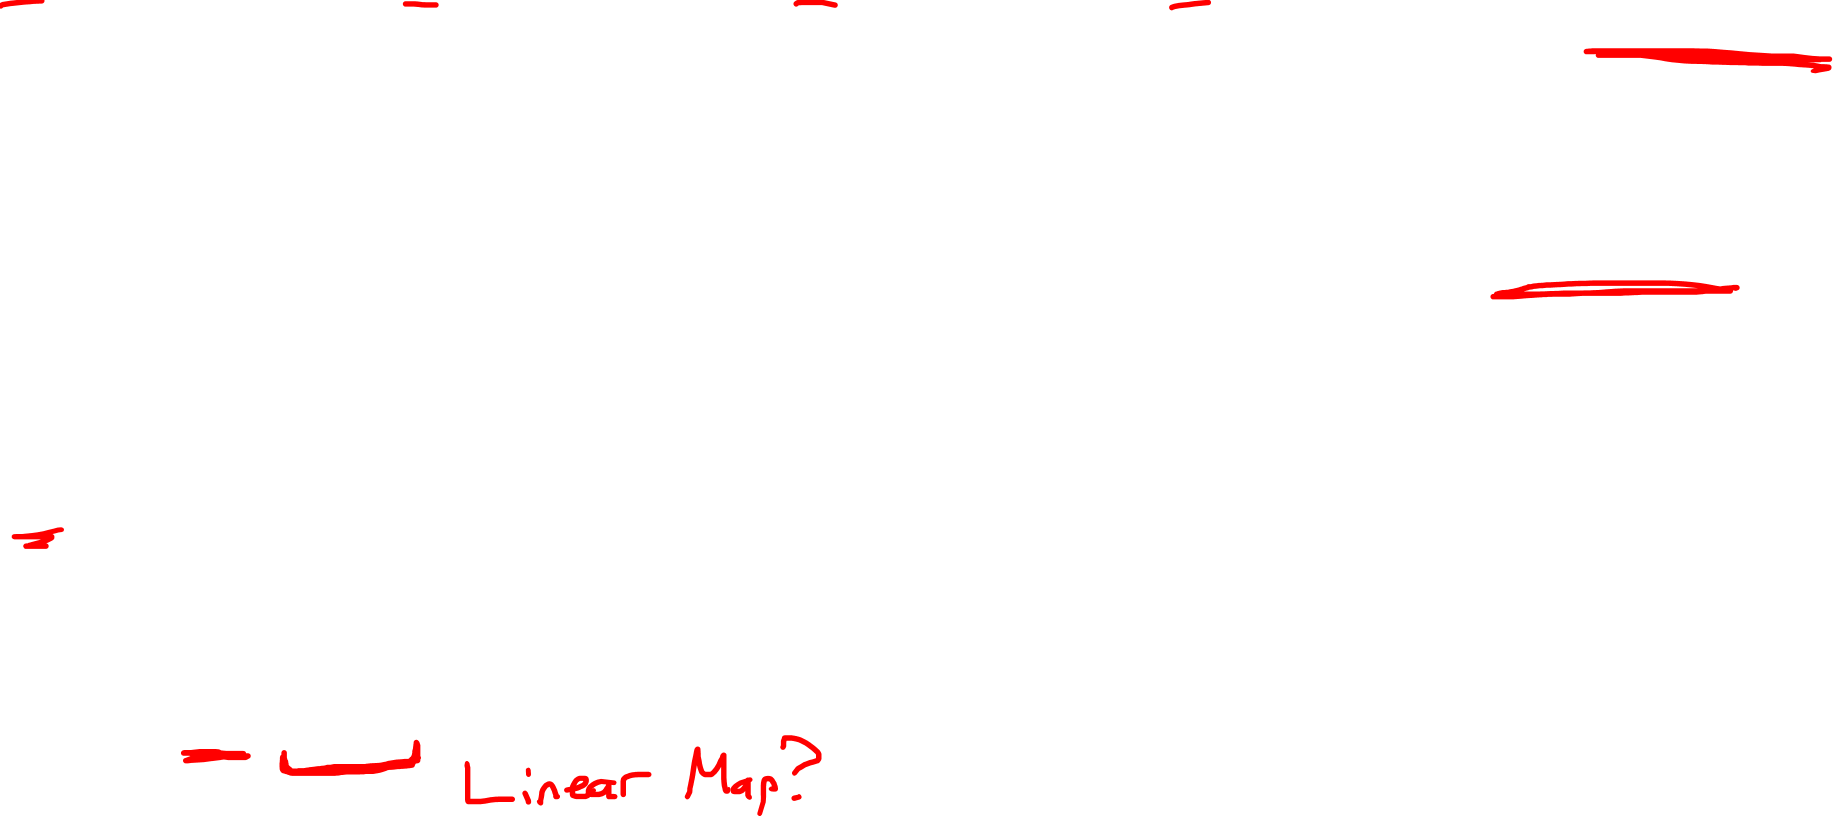 Linear Map?